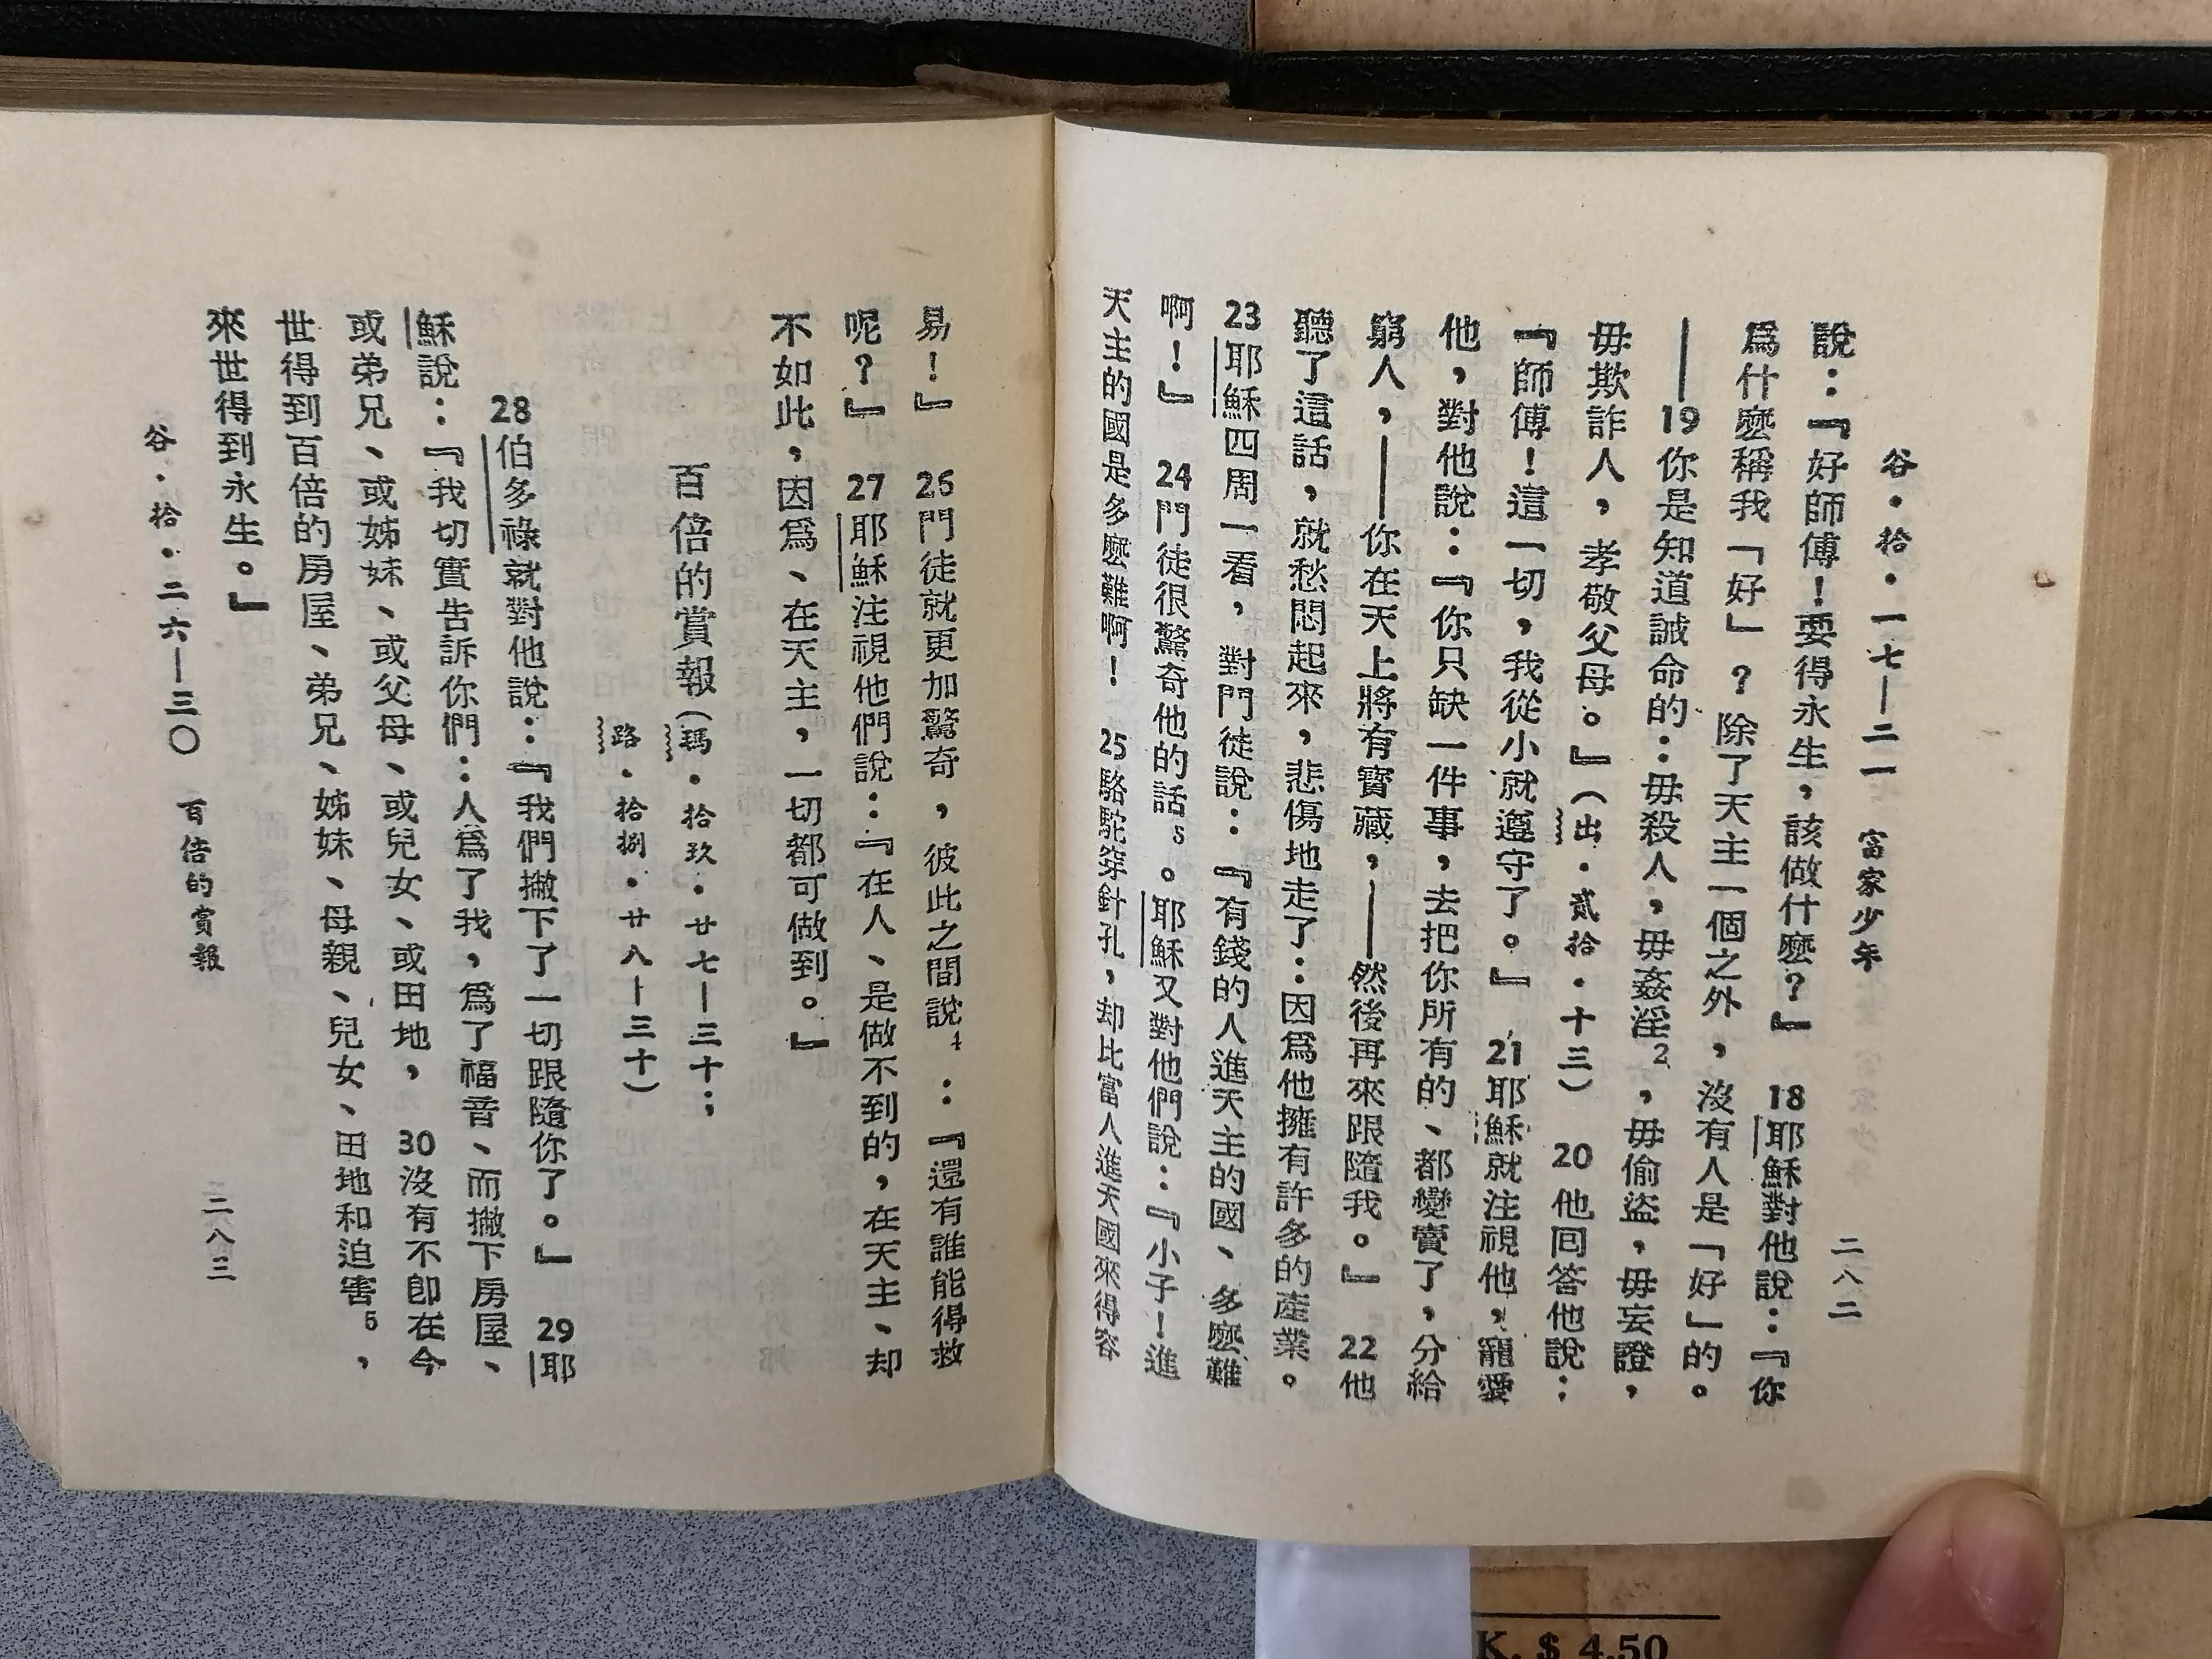 谷．拾．一七—二一 富家少年 二八二
說：『好師傅！要得永生，該做什麼？』 18耶穌對他說：『你
爲什麼稱我「好」？除了天主一個之外，沒有人是「好」的。
——19你是知道誡命的：毋殺人，毋姦淫2，毋偷盜，毋妄證，
毋欺詐人，孝敬父母。』（出．貳拾．十三） 20他回答他說：
『師傅！這一切，我從小就遵守了。』 21耶穌就注視他，寵愛
他，對他說：『你只缺一件事，去把你所有的、都變賣了，分給
窮人，——你在天上將有寳藏，——然後再來跟隨我。』 22他
聽了這話，就愁悶起來，悲傷地走了：因爲他擁有許多的產業。
23耶穌四周一看，對門徒說：『有錢的人進天主的國、多麼難
啊！』 24門徒很驚奇他的話5。耶穌又對他們說：『小子！進
天主的國是多麼難啊！ 25駱駝穿針孔，却比富人進天國來得容
易！』 26門徒就更加驚奇，彼此之間說4：『還有誰能得救
呢？』 27耶穌注視他們說：『在人、是做不到的，在天主、却
不如此，因爲、在天主，一切都可做到。』
百倍的賞報（瑪．拾玖．廿七—三十；
路．拾捌．廿八—三十）
28伯多祿就對他說：『我們撇下了一切跟隨你了。』 29耶
穌說：『我切實告訴你們：人爲了我，爲了福音、而撇下房屋、
或弟兄、或姊妹、或父母、或兒女、或田地， 30沒有不卽在今
世得到百倍的房屋、弟兄、姊妹、母親、兒女、田地和迫害5，
來世得到永生。』
谷．拾．二六—三〇 百倍的賞報 二八三
K. $ 4.50